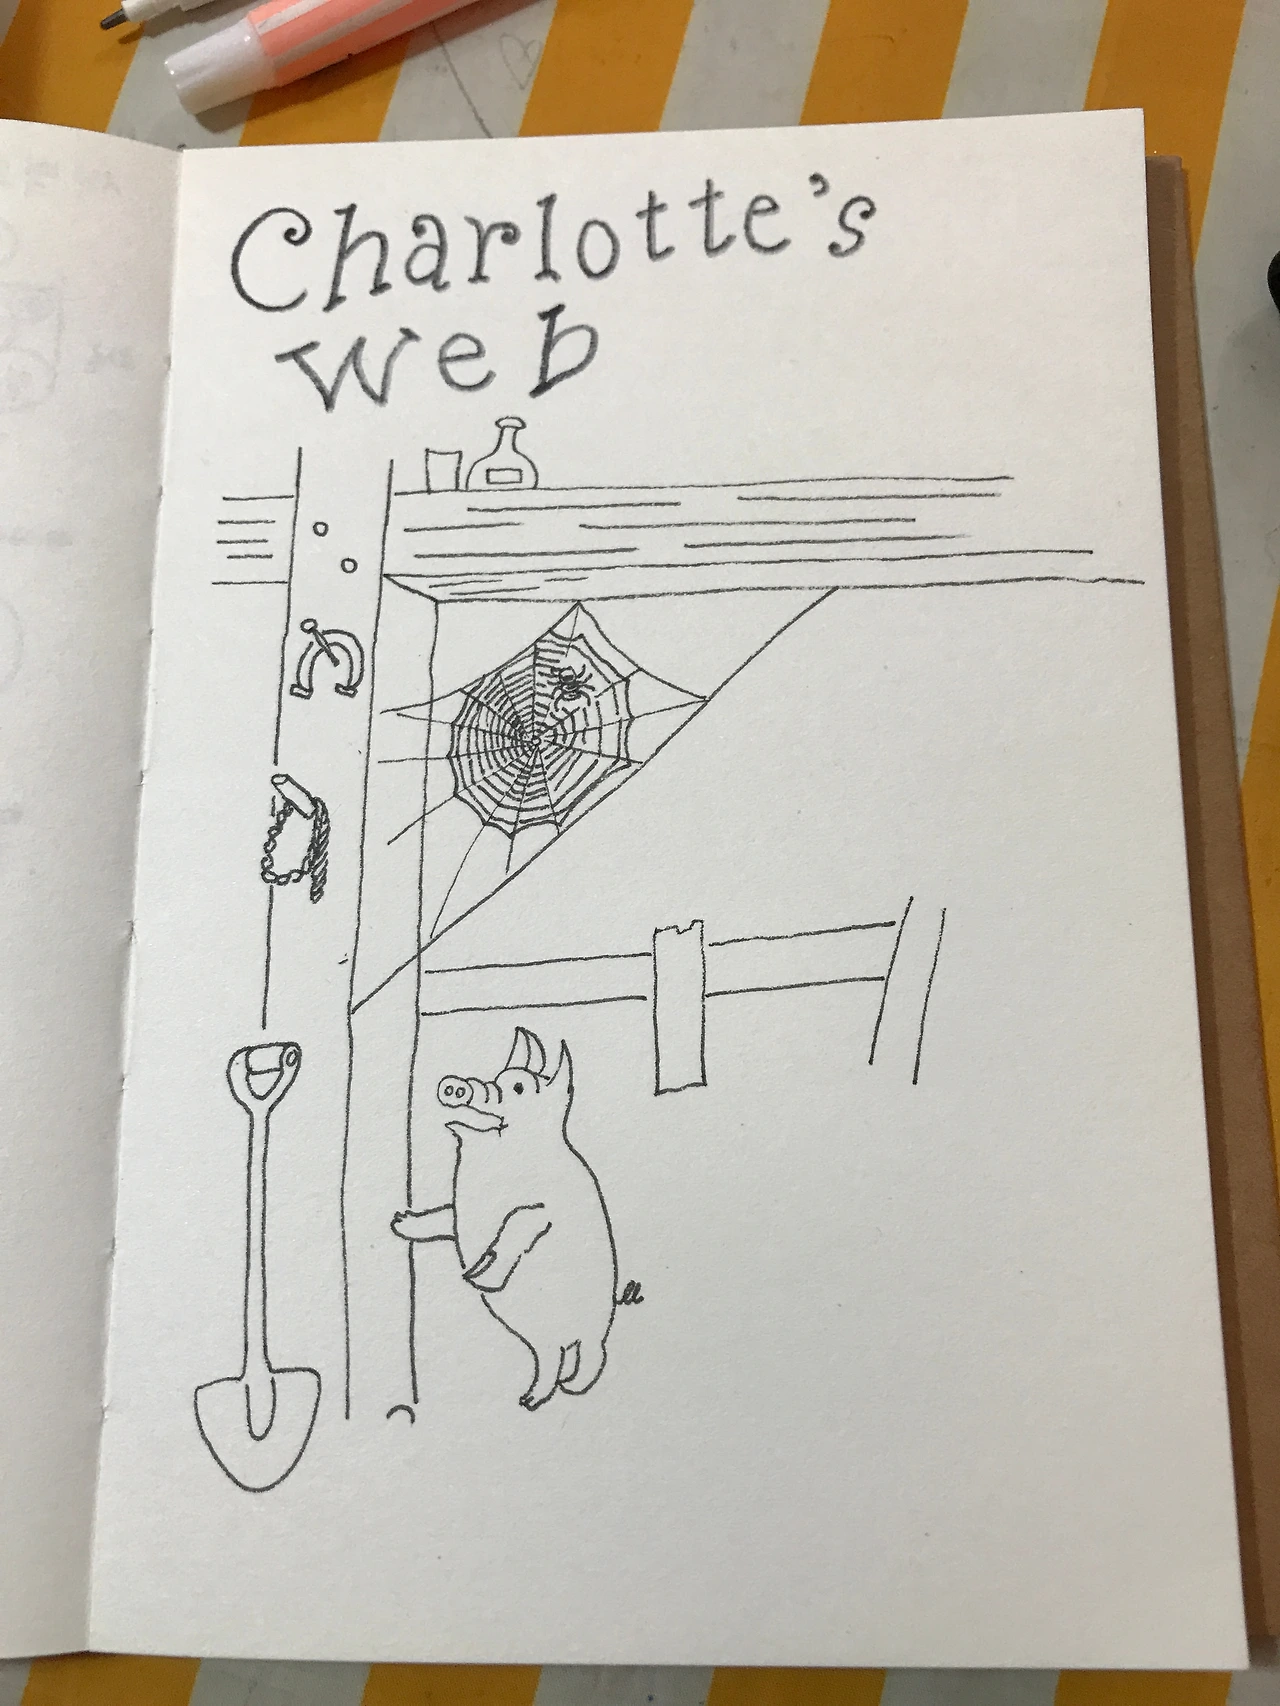 Charlotte's
Web